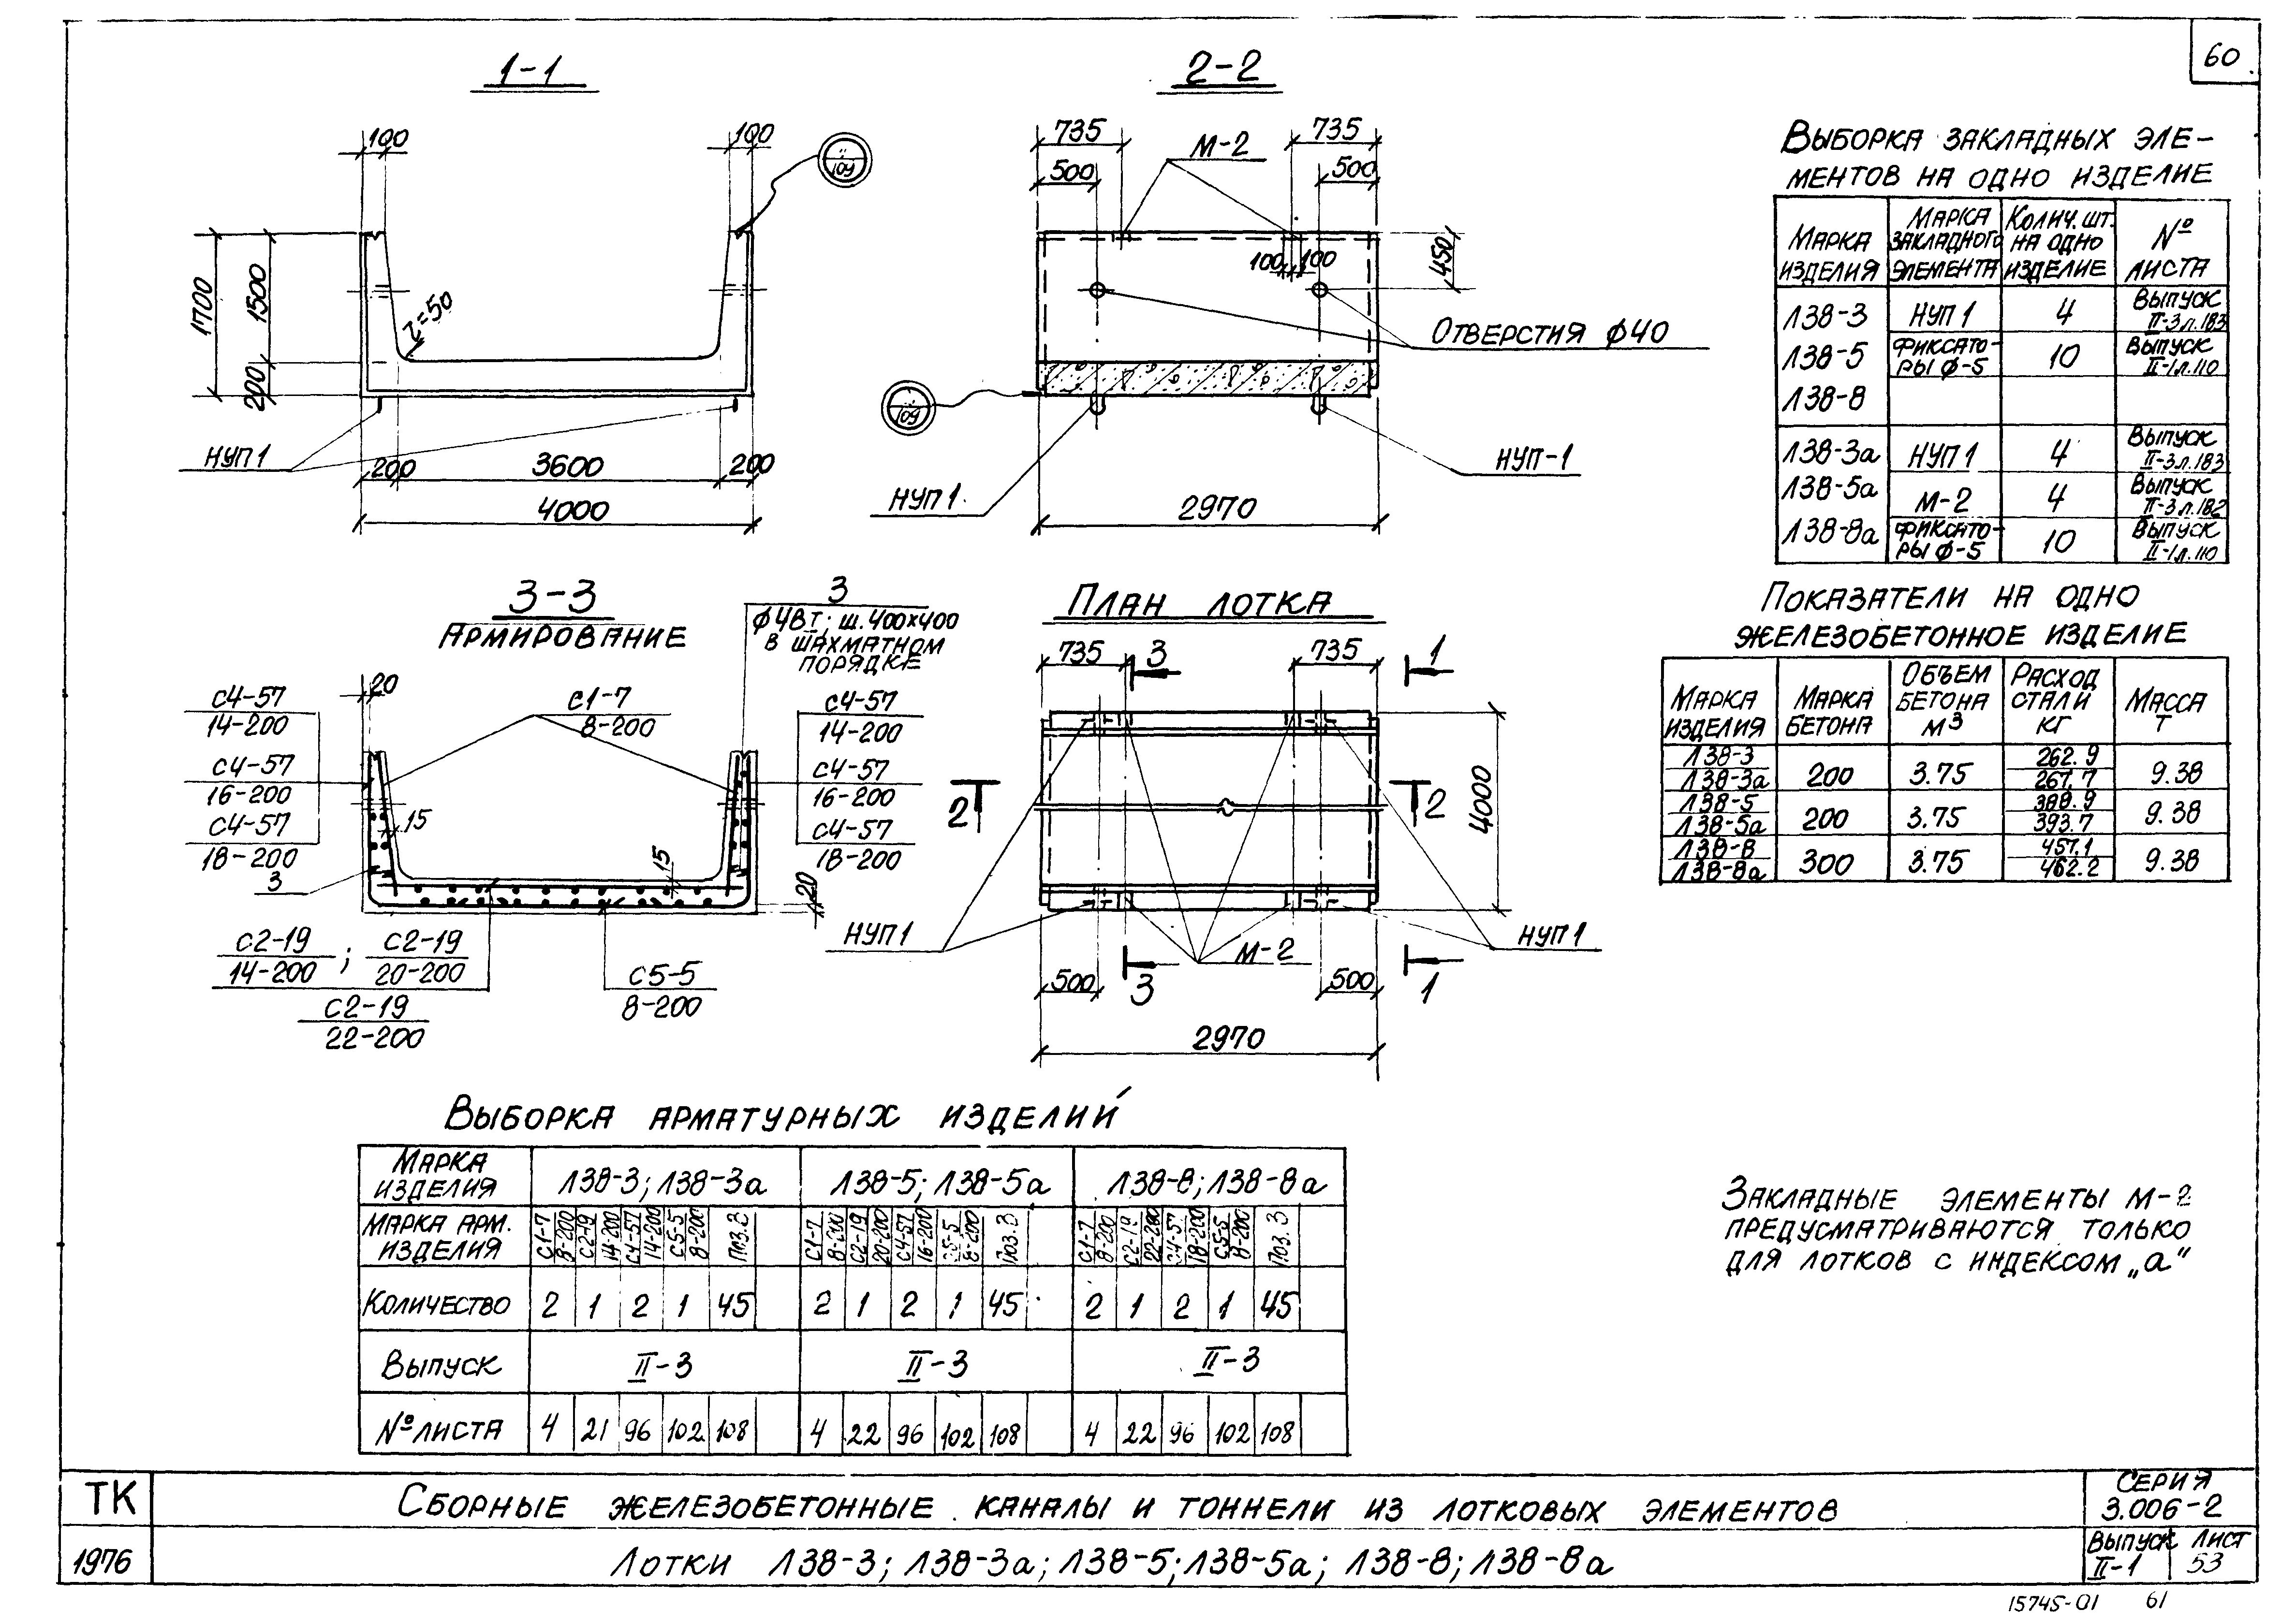 60
1-1
100
100
109
1700
1500
200
r=50
НУП1
200
3600
200
4000
2-2
735
М-2
735
500
500
450
100
100
Отверстия ф40
109
НУП1
НУП-1
2970
Выборка закладных эле-
ментов на одно изделие
Марка изделия
Марка закладного элемента
Колич. шт. на одно изделие
№ листа
Л38-3
Л38-5
Л38-8
НУП1
4
Выпуск II-3 л.183
фиксато-
ры ф-5
10
Выпуск II-1 л.110
Л38-3а
Л38-5а
Л38-8а
НУП1
4
Выпуск II-3 л.183
М-2
4
Выпуск II-3 л.182
фиксато-
ры ф-5
10
Выпуск II-1 л.110
3-3
Армирование
3
ф4ВI; ш.400х400
в шахматном
порядке
20
С4-57
14-200
С4-57
16-200
С4-57
18-200
3
С1-7
8-200
С4-57
14-200
С4-57
16-200
С4-57
18-200
15
15
20
С2-19
14-200
;
С2-19
20-200
С2-19
22-200
С5-5
8-200
План лотка
735
3
735
1
2
2
4000
НУП1
М-2
НУП1
500
3
500
1
2970
Показатели на одно
железобетонное изделие
Марка изделия
Марка бетона
Объем бетона м3
Расход стали кг
Масса т
Л38-3
Л38-3а
200
3.75
262.9
267.7
9.38
Л38-5
Л38-5а
200
3.75
388.9
393.7
9.38
Л38-8
Л38-8а
300
3.75
457.1
462.2
9.38
Выборка арматурных изделий
Марка изделия
Л38-3; Л38-3а
Л38-5; Л38-5а
Л38-8; Л38-8а
Марка арм. изделия
С1-7 8-200
С2-19 14-200
С4-57 14-200
С5-5 8-200
Поз.3
С1-7 8-200
С2-19 20-200
С4-57 16-200
С5-5 8-200
Поз.3
С1-7 8-200
С2-19 22-200
С4-57 18-200
С5-5 8-200
Поз.3
Количество
2 1 2 1 45
2 1 2 1 45
2 1 2 1 45
Выпуск
II-3
II-3
II-3
№ листа
4 21 96 102 108
4 22 96 102 108
4 22 96 102 108
Закладные элементы М-2
предусматриваются только
для лотков с индексом „а"
ТК
1976
Сборные железобетонные каналы и тоннели из лотковых элементов
Лотки Л38-3; Л38-3а; Л38-5; Л38-5а; Л38-8; Л38-8а
Серия
3.006-2
Выпуск
II-1
Лист
53
15745-01 61